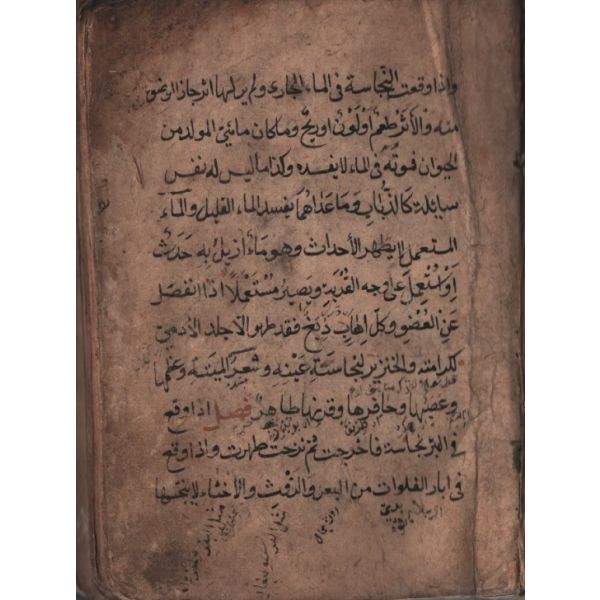 واذا وقعت النجاسة في الماء الجارى ولم يرلها اثر جاز الوضوء
منه والأثر طعم اولون اوريح وماكان مائى المولد من
الحيوان فموته في الماء لايفسده وكذا ماليس له نفس
سائلة كالذباب وماعداهما يفسد الماء القليل والماء
المستعمل لايطهر الأحداث وهو ماء ازيل به حدث
اواستعمل على وجه القربة ويصير مستعملا اذا انفصل
عن العضو وكل اهاب دبغ فقد طهر الا جلد الآدمى
لكرامته والخنزير لنجاسة عينه وشعر الميتة وعظمها
وعصبها وحافرها وقرنها طاهر فصل اذا وقع
في البئر نجاسة فاخرجت ثم نزحت طهرت واذا وقع
في ابار الفلوات من البعر والروث والأخثاء لاينجسها